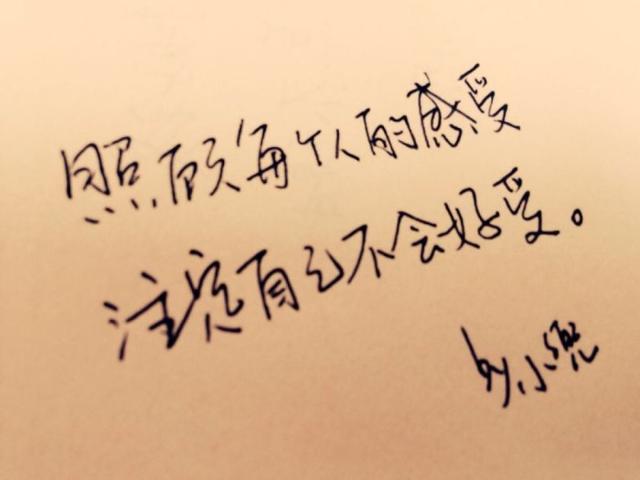 照顾每个人的感受
注定自己不会好受。
by.小